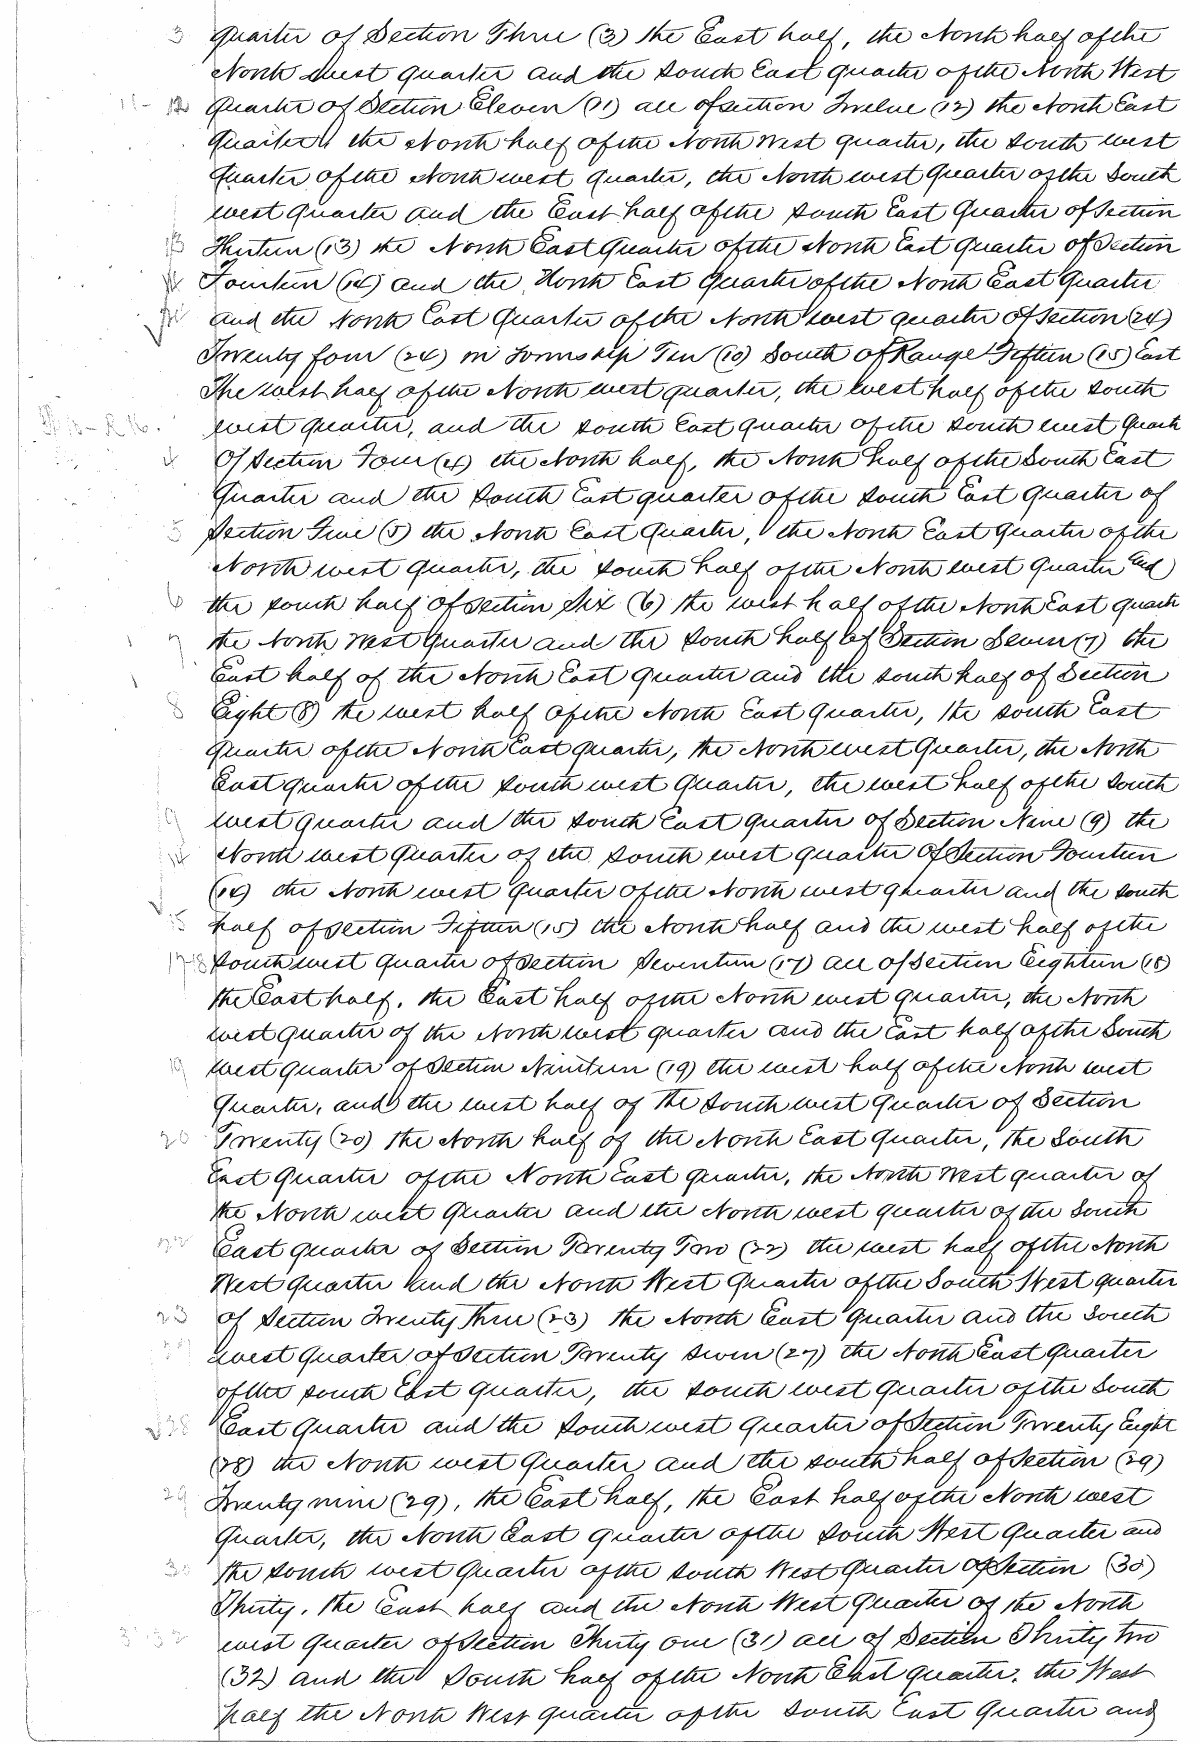 3 quarter of Section Three (3) the East half, the North half of the
North west quarter and the South East quarter of the North West
11 - 12 Quarter of Section Eleven (11) all of section Twelve (12) the North East
Quarter, the North half of the North West quarter, the South west
quarter of the North west quarter, the North west Quarter of the South
west quarter and the East half of the South East Quarter of Section
13 Thirteen (13) the North East Quarter of the North East quarter of Section
14 Fourteen (14) and the North East Quarter of the North East Quarter
24 and the North East Quarter of the North west quarter of Section (24)
Twenty four (24) in Township Ten (10) South of Range Fifteen (15) East
The west half of the North west quarter, the west half of the South
west quarter, and the South East quarter of the South west Quarter
4 Of Section Four (4) the North half, the North half of the South East
Quarter and the South East quarter of the South East Quarter of
5 Section Five (5) the North East Quarter, the North East Quarter of the
North west quarter, the South half of the North west Quarter and
6 the South half of Section Six (6) the west half of the North East quarter
7 the North West Quarter and the South half of Section Seven (7) the
East half of the North East Quarter and the South half of Section
8 Eight (8) the west half of the North East Quarter, the South East
quarter of the North East quarter, the North west Quarter, the North
East quarter of the South west Quarter, the west half of the South
9 west quarter and the South East quarter of Section Nine (9) the
14 North west Quarter of the South west quarter of Section Fourteen
(14) the North west quarter of the North west quarter and the South
15 half of Section Fifteen (15) the North half and the west half of the
17-18 South west quarter of Section Seventeen (17) all of Section Eighteen (18)
the East half, the East half of the North west quarter, the North
west quarter of the North west quarter and the East half of the South
19 west quarter of Section Nineteen (19) the west half of the North west
Quarter, and the west half of the South west Quarter of Section
20 Twenty (20) the North half of the North East quarter, the South
East Quarter of the North East quarter, the North West quarter of
the North west Quarter and the North west quarter of the South
22 East quarter of Section Twenty Two (22) the west half of the North
West quarter and the North West Quarter of the South West quarter
23 of Section Twenty three (23) the North East Quarter and the South
27 west Quarter of Section Twenty Seven (27) the North East Quarter
of the South East quarter, the South west quarter of the South
28 East Quarter and the South west Quarter of Section Twenty Eight
(28) the North west Quarter and the South half of Section (29)
29 Twenty nine (29), the East half, the East half of the North west
Quarter, the North East quarter of the South West Quarter and
30 the South west Quarter of the South West Quarter of Section (30)
Thirty. the East half and the North West Quarter of the North
31 32 west quarter of Section Thirty one (31) all of Section Thirty two
(32) and the South half of the North East quarter. the West
half the North West quarter of the South East Quarter and